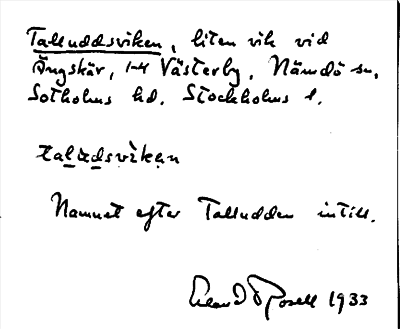 Talluddsviken, liten vik vid
Ängskär, 1-4 Västerby, Nämdö sn,
Sotholms hd. Stockholms l.
taludsvikan
Namnet efter Talludden intill.
Rosell 1933